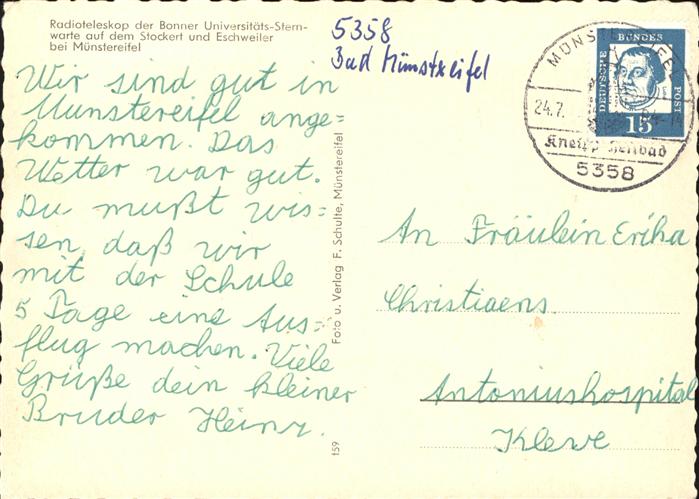 Radioteleskop der Bonner Universitäts-Stern-
warte auf dem Stockert und Eschweiler
bei Münstereifel
5358
Bad Münstereifel
Wir sind gut in
Munstereifel ange=
kommen. Das
Wetter war gut.
Du mußt wis=
sen, daß wir
mit der Schule
5 Tage eine Aus=
flug machen. Viele
Grüße dein kleiner
Bruder Heinz.
Foto u. Verlag F. Schulte, Münstereifel
159
DEUTSCHE BUNDES POST
15
MÜNSTEREIFEL
24.7.
Kneipp Heilbad
5358
An Fräulein Erika
Christiaens
Antoniushospital
Kleve